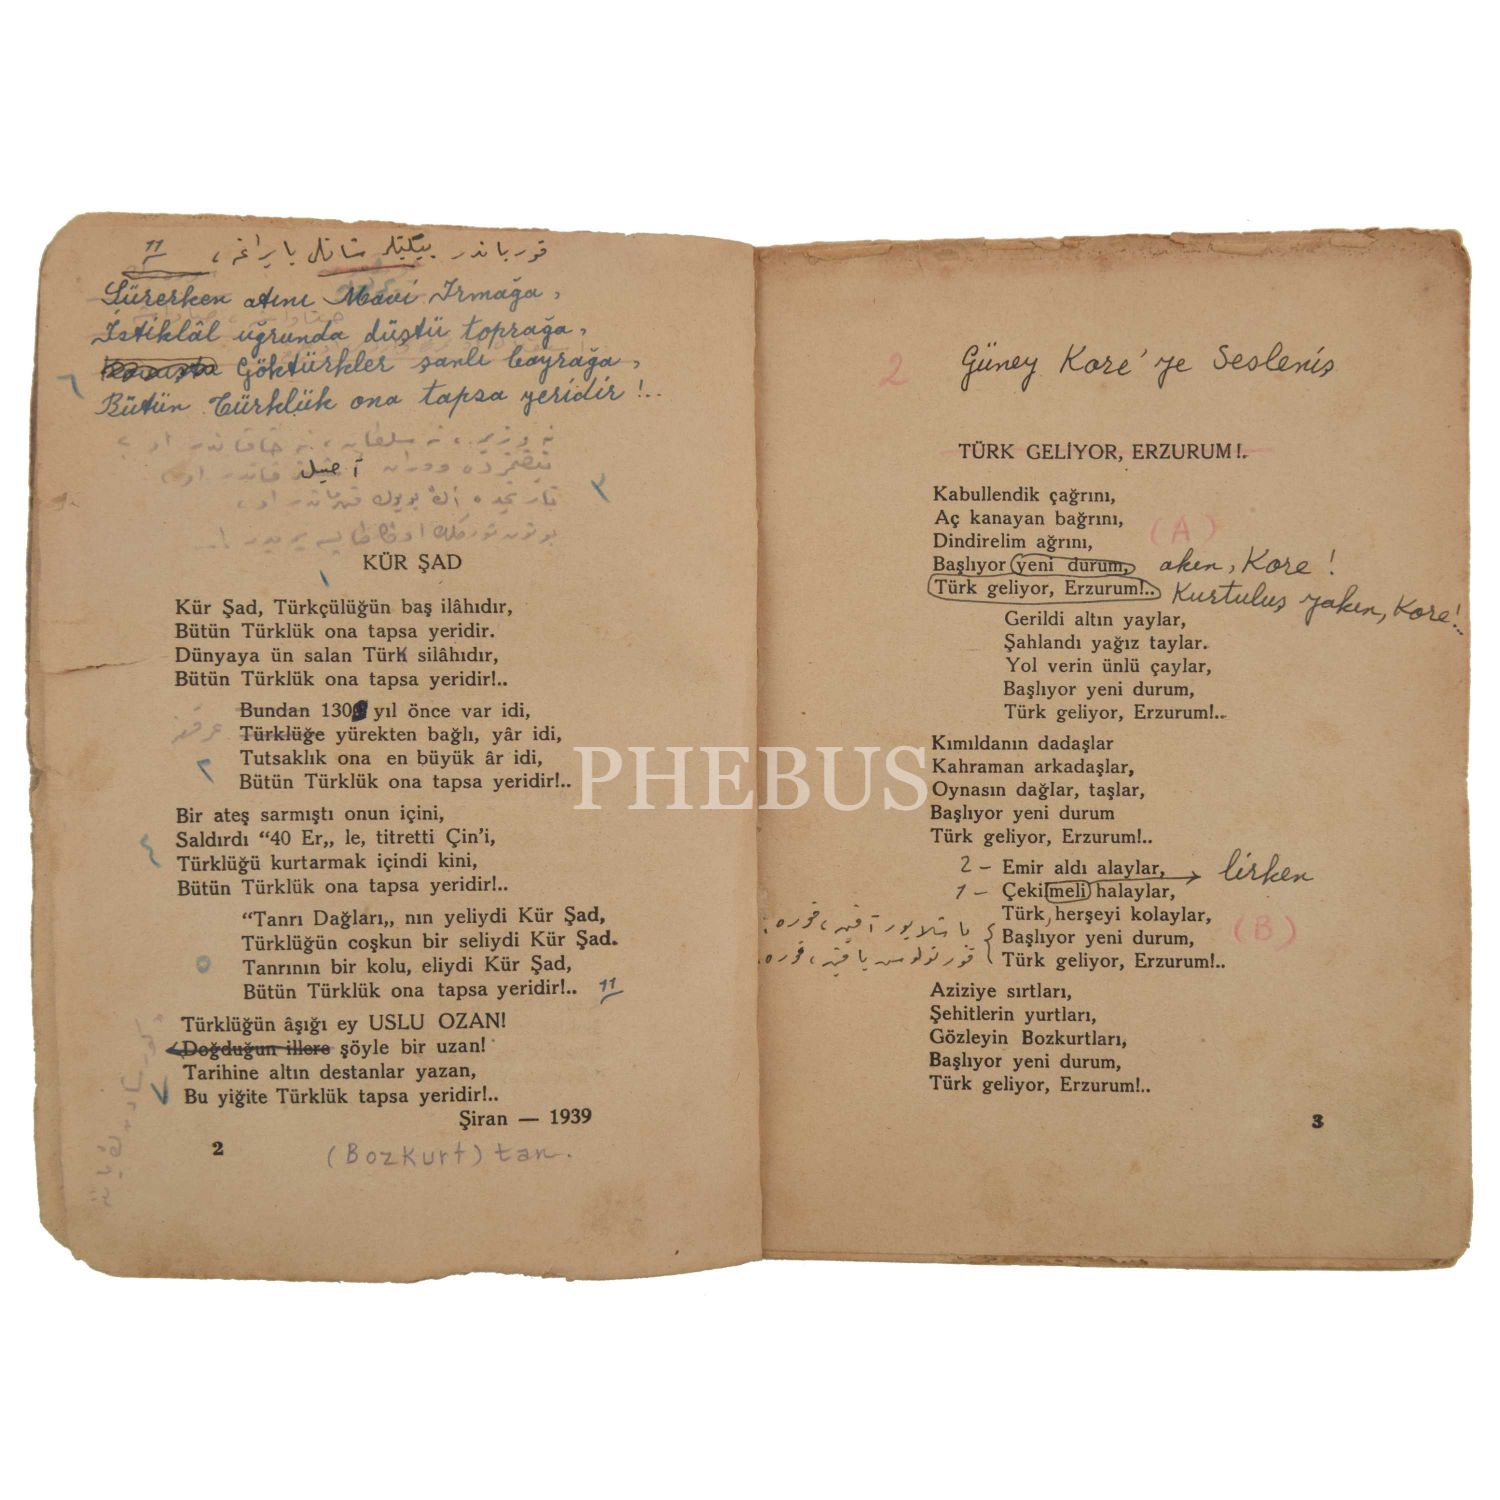 11 قورباندر یيكیتلر شانلی بایراغه ،
Sürerken atını Mavi Irmağa,
İstiklâl uğrunda düştü toprağa,
Göktürkler şanlı bayrağa,
٦
Bütün Türklük ona tapsa yeridir!..
نه وزیر، نه سلطان، نه خاقاندر او ؛
٣
تاریخده اڭ بویوك قهرماندر او،
KÜR ŞAD
١
Kür Şad, Türkçülüğün baş ilâhıdır,
Bütün Türklük ona tapsa yeridir.
Dünyaya ün salan Türk silâhıdır,
Bütün Türklük ona tapsa yeridir!..
Bundan 130 yıl önce var idi,
Türklüğe yürekten bağlı, yâr idi,
Tutsaklık ona en büyük âr idi,
٢
Bütün Türklük ona tapsa yeridir!..
Bir ateş sarmıştı onun içini,
٤ Saldırdı “40 Er„ le, titretti Çin'i,
Türklüğü kurtarmak içindi kini,
Bütün Türklük ona tapsa yeridir!..
“Tanrı Dağları„ nın yeliydi Kür Şad,
Türklüğün coşkun bir seliydi Kür Şad.
٥ Tanrının bir kolu, eliydi Kür Şad,
Bütün Türklük ona tapsa yeridir!.. 11
Türklüğün âşığı ey USLU OZAN!
Doğduğun illere şöyle bir uzan!
Tarihine altın destanlar yazan,
٧ Bu yiğite Türklük tapsa yeridir!..
Şiran — 1939
2
(Bozkurt) tan.
2 Güney Kore'ye Sesleniş
TÜRK GELİYOR, ERZURUM!.
Kabullendik çağrını,
Aç kanayan bağrını,
(A)
Dindirelim ağrını,
Başlıyor yeni durum, akın, Kore!
Türk geliyor, Erzurum!.. Kurtuluş yakın, Kore!..
Gerildi altın yaylar,
Şahlandı yağız taylar.
Yol verin ünlü çaylar,
Başlıyor yeni durum,
Türk geliyor, Erzurum!..
Kımıldanın dadaşlar
Kahraman arkadaşlar,
Oynasın dağlar, taşlar,
Başlıyor yeni durum
Türk geliyor, Erzurum!..
2 - Emir aldı alaylar, lirken
1 - Çekilmeli halaylar,
Türk, herşeyi kolaylar,
باشلایور آقین، قوره! Başlıyor yeni durum, (B)
قورتولوس یاقین، قوره! Türk geliyor, Erzurum!..
Aziziye sırtları,
Şehitlerin yurtları,
Gözleyin Bozkurtları,
Başlıyor yeni durum,
Türk geliyor, Erzurum!..
3
PHEBUS